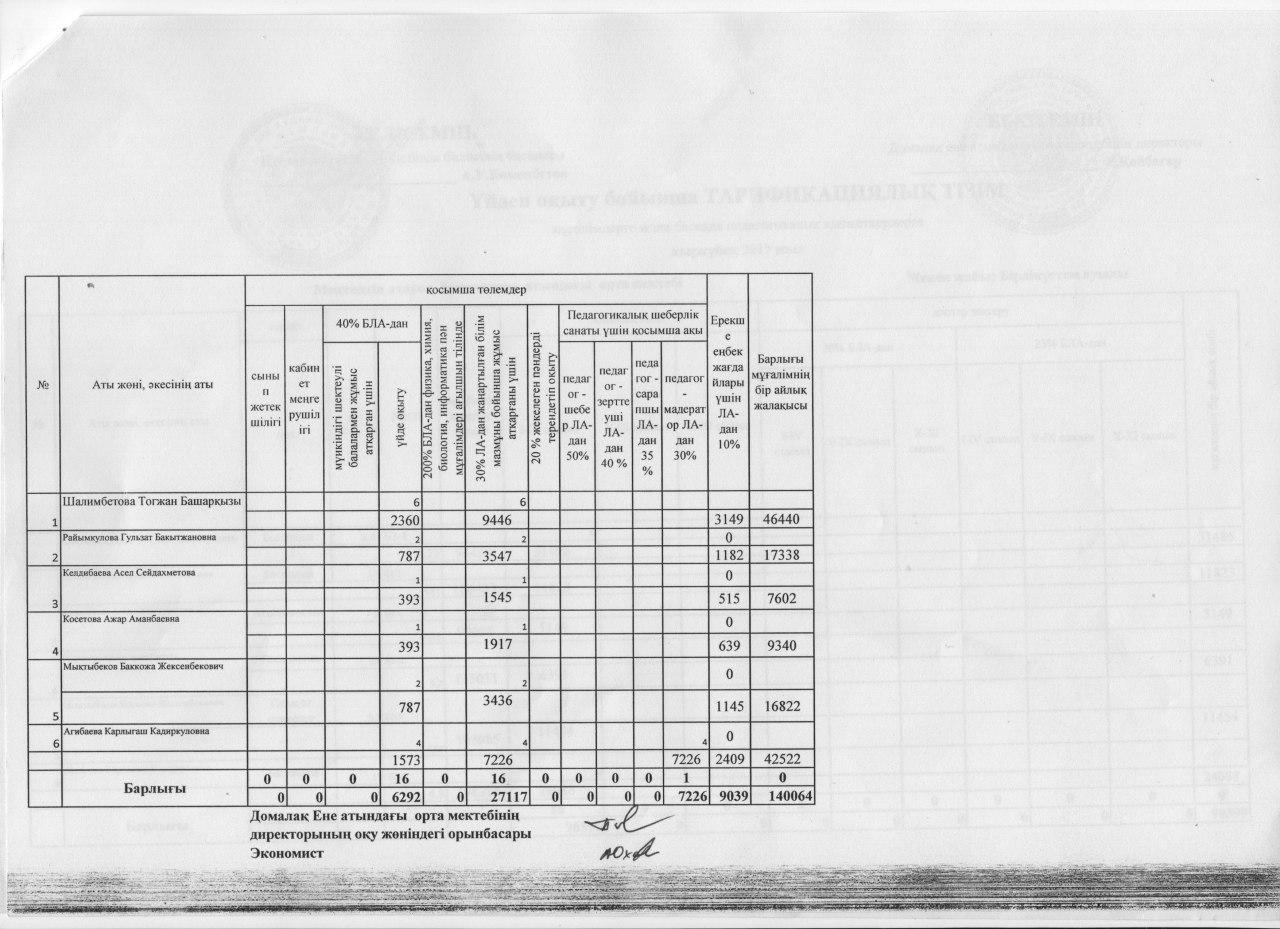 қосымша төлемдер
№
Аты жөні, әкесінің аты
сынып жетекшілігі
кабинет меңгерушілігі
40% БЛА-дан
мүнкіндігі шектеулі балалармен жұмыс атқарған үшін
үйде оқыту
200% БЛА-дан физика, химия, биология, информатика пән мұғалімдері ағылшын тілінде
30% ЛА-дан жанартылған білім мазмұны бойынша жұмыс атқарғаны үшін
20 % жекелеген пәндерді терендетіп оқыту
Педагогикалық шеберлік санаты үшін қосымша акы
педагог - шебер ЛА-дан 50%
педагог - зерттеуші ЛА-дан 40 %
педагог - сарапшы ЛА-дан 35 %
педагог - мадератор ЛА-дан 30%
Ерекше еңбек жағдайлары үшін ЛА-дан 10%
Барлығы мұғалімнің бір айлық жалақысы
Шалимбетова Тогжан Башарқызы 6 6
1 2360 9446 3149 46440
Райымкулова Гульзат Бакытжановна 2 2 0
2 787 3547 1182 17338
Келдибаева Асел Сейдахметова 1 1 0
3 393 1545 515 7602
Косетова Ажар Аманбаевна 1 1 0
4 393 1917 639 9340
Мыктыбеков Баккожа Жексенбекович 2 2 0
5 787 3436 1145 16822
6 Агибаева Карлыгаш Кадиркуловна 4 4 4 0
1573 7226 7226 2409 42522
Барлығы 0 0 0 16 0 16 0 0 0 0 1 0
0 0 0 6292 0 27117 0 0 0 0 7226 9039 140064
Домалақ Ене атындағы орта мектебінің
директорының оқу жөніндегі орынбасары
Экономист